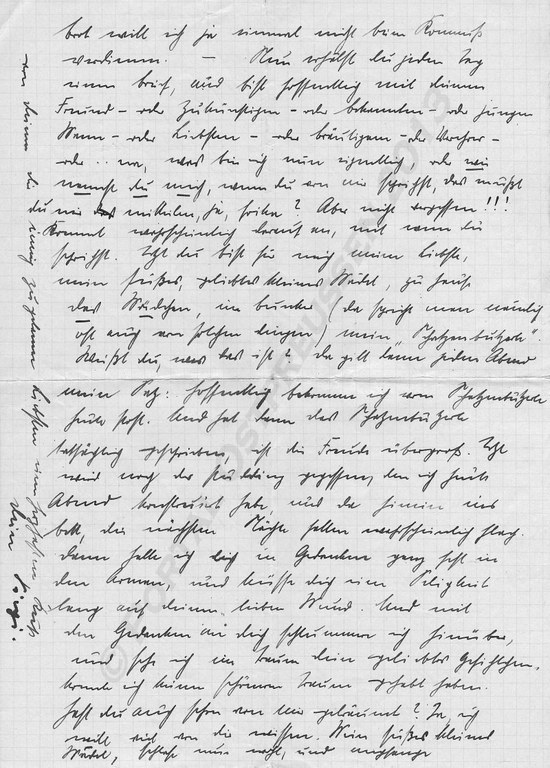 dort will ich ja einmal nicht beim Kommiß
verdienen. — Nun erhälst du jeden Tag
einen brief, und bist hoffentlich mit deinem
Freund - oder Zukünftigen - oder bekannten - oder jungen
Mann - oder Liebsten - oder bräutigam - oder Verehrer -
oder .. na, was bin ich nun eigentlich, oder wie
nennst du mich, wenn du von mir sprichst, das mußt
du mir mitteilen, ja, bitte? Aber nicht vergessen!!!
Kommt wahrscheinlich darauf an, mit wem du
sprichst. Itzt du bist für mich meine Liebste,
mein süßes, geliebtes kleines Mädel, zu Hause
das Mädchen, im bunker (da spricht man nämlich
oft auch von solchen dingen) mein „Schatzenbutzele".
Weißt du, was das ist? Da gilt dann jeden Abend
mein Satz: hoffentlich bekomme ich vom Schatzenbutzele
heute Post. Und hat dann das Schatzenbutzele
tatsächlich geschrieben, ist die Freude übergroß. Itzt
wird noch der Pudding gegessen, den ich heute
Abend konstruiert habe, und da hinein ins
bett, die nächsten Nächte fallen wahrscheinlich flach.
dann halte ich dich in Gedanken ganz fest in
den Armen, und küsse dich eine Seligkeit
lang auf deinen lieben Mund. Und mit
den Gedanken an dich schlummere ich hinüber,
und sehe ich im Traum dein geliebtes Gesichtchen,
konnte ich keinen schöneren Traum gehabt haben.
hast du auch schon von mir geträumt? Ja, ich
will viel von dir wissen. Mein süßes kleines
Mädel, schlafe nun wohl, und empfange
von deinem dir innig zugetanen Liebsten einen Kuß
dein
© FORUM OSTPREUSSEN 2013